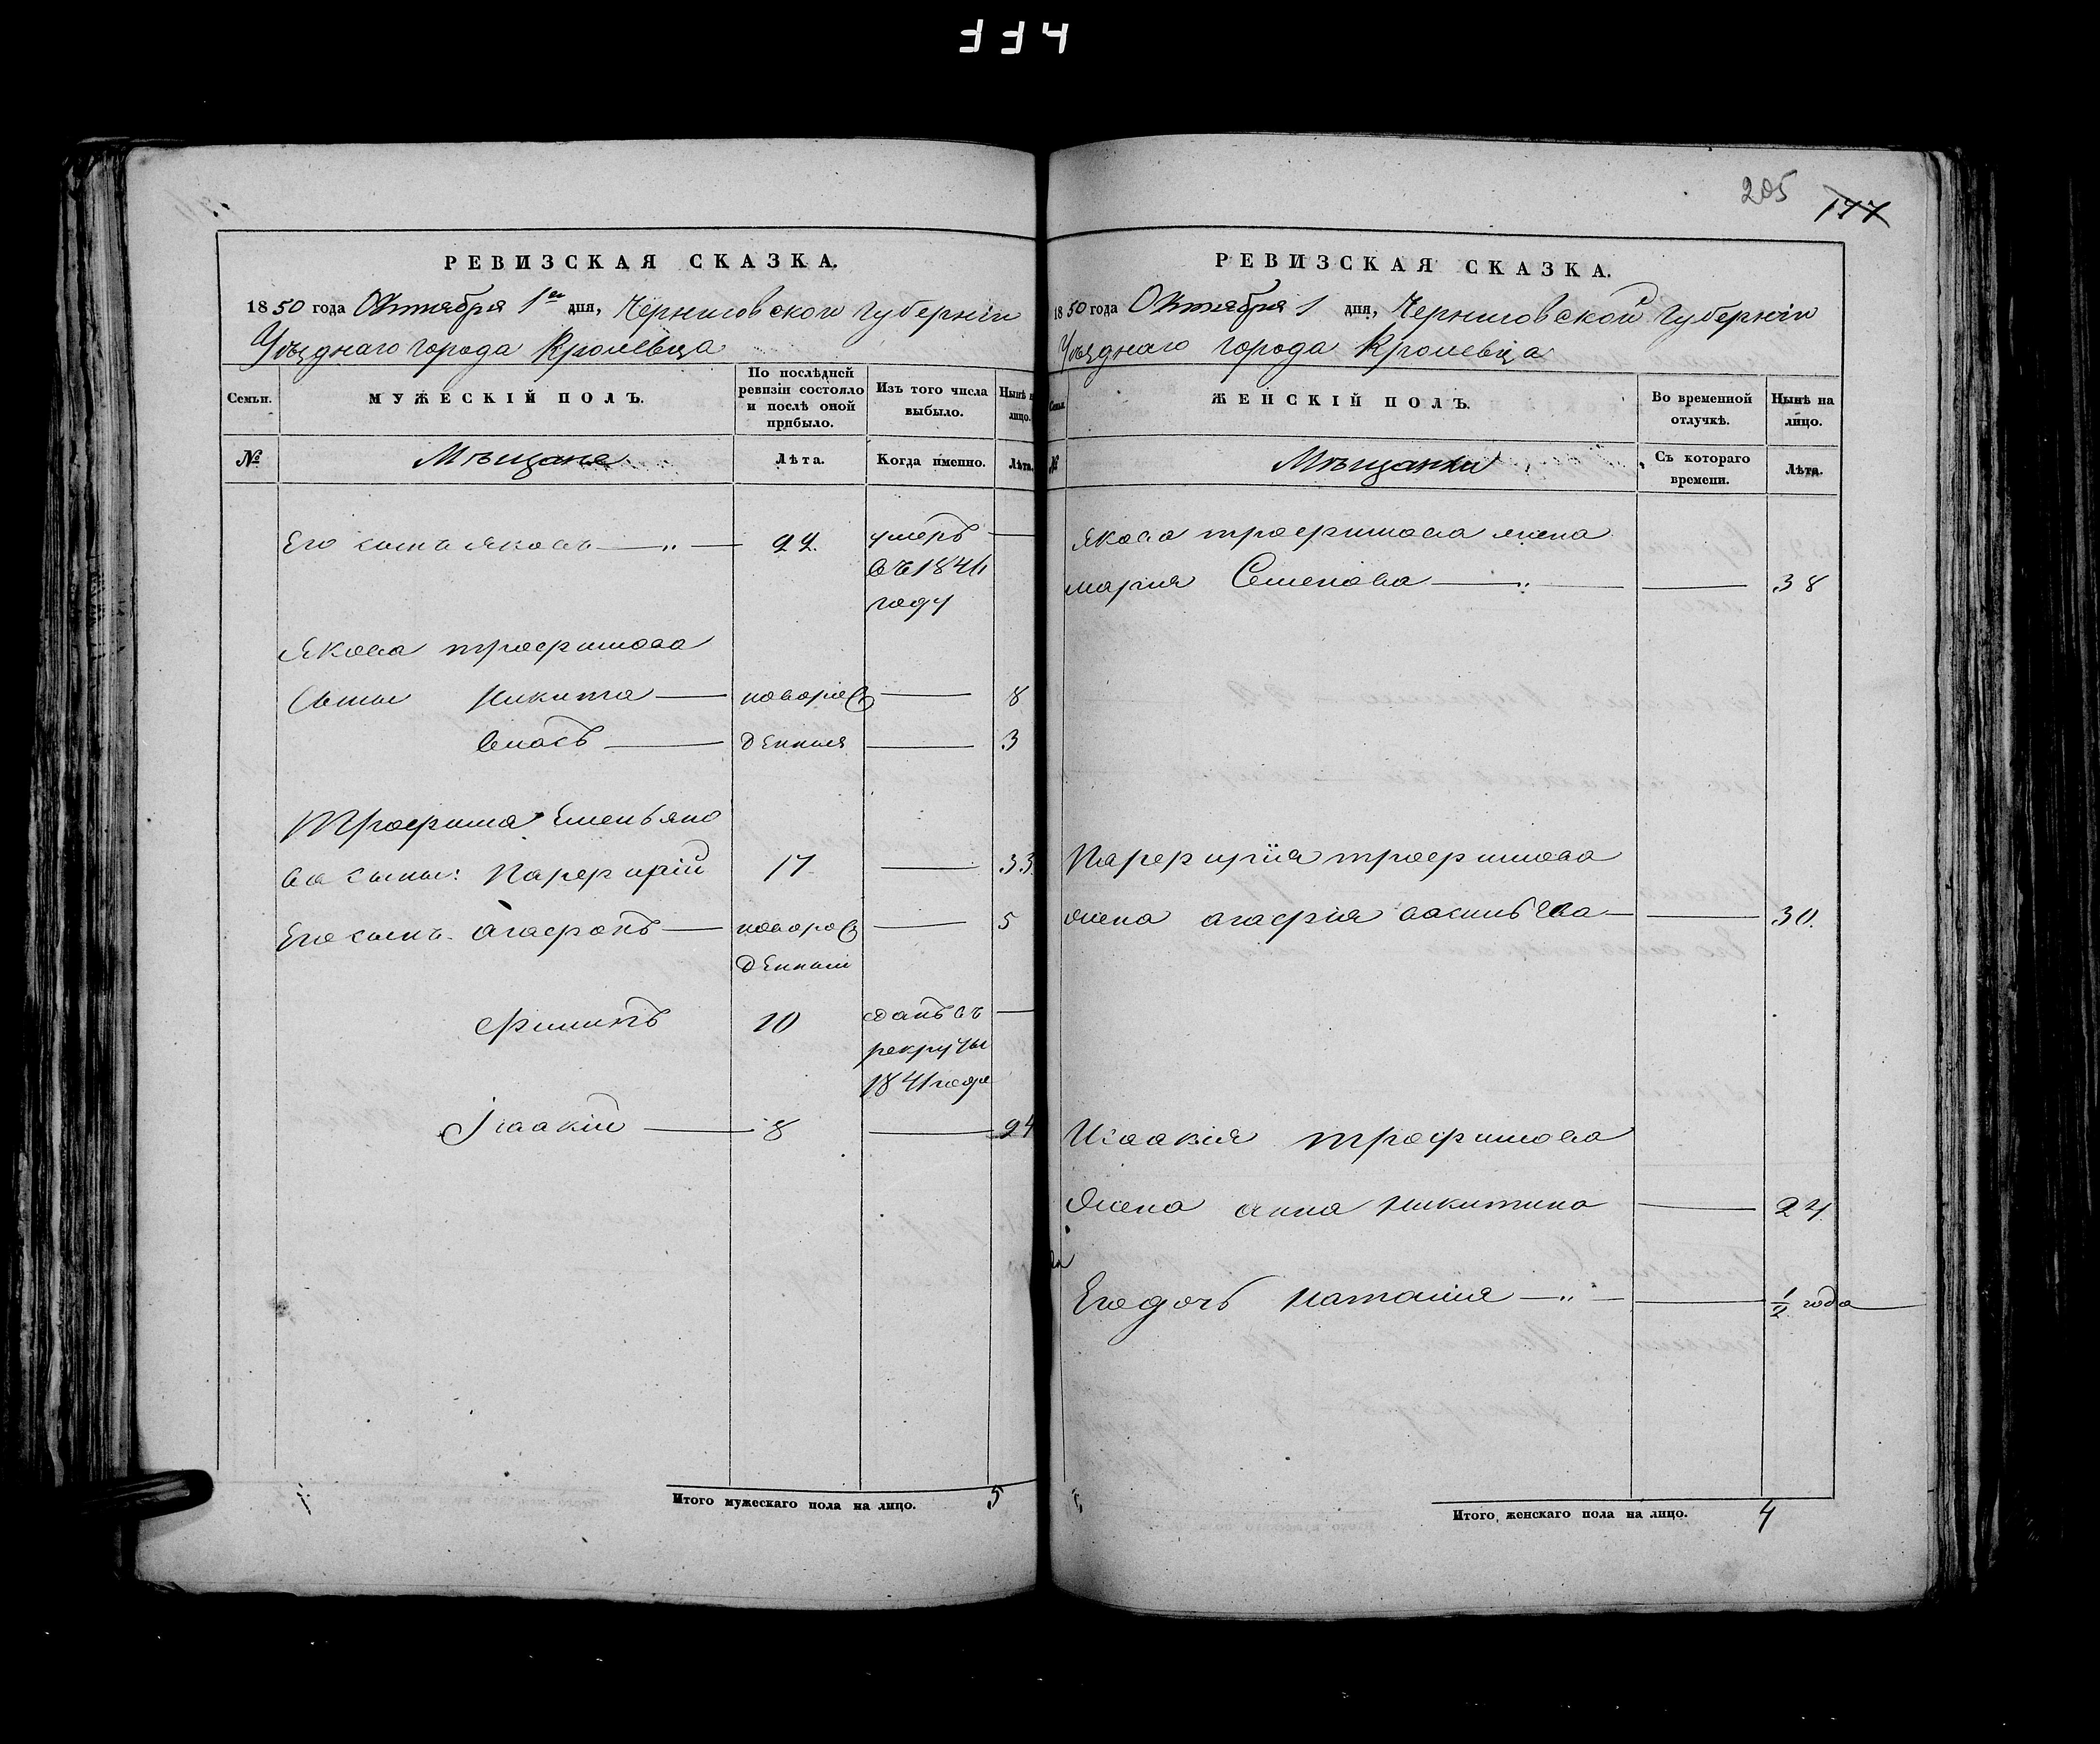 334
РЕВИЗСКАЯ СКАЗКА.
1850 года Октября 1го дня, Черниговской Губерніи
Уѣзднаго города Кролевца
Семьи.
МУЖЕСКІЙ ПОЛЪ.
По послѣдней ревизіи состояло и послѣ оной прибыло.
Изъ того числа выбыло.
Нынѣ на лицо.
№
Мѣщане
Лѣта.
Когда именно.
Лѣта.
Его сынъ Яковъ — „ — 22 умеръ —
въ 1844
году
Якова трофимова
Сыны Никита — новорож — 8
Власъ — денныя — 3
Трофима Емельяно
ва сыны: Парфирій 17 — 33
Его сынъ агафонъ — новорож — 5
денный
Филипъ 10 данъ въ —
рекруты
1841 года
Ісаакій — 8 — 24
Итого мужескаго пола на лицо. 5
205 177
РЕВИЗСКАЯ СКАЗКА.
1850 года Октября 1 дня, Черниговской Губерніи
Уѣзднаго города Кролевца
Семьи.
ЖЕНСКІЙ ПОЛЪ.
Во временной отлучкѣ.
Нынѣ на лицо.
№
Мѣщанки
Съ котораго времени.
Лѣта.
Якова трофимова жена
марія Семенова — „ — 38
Парфирія трофимова
жена агафія васильева — 30.
Исаакія трофимова
жена анна Никитина — 24.
Его дочь наталія — „ — 1/2 года
Итого женскаго пола на лицо. 4